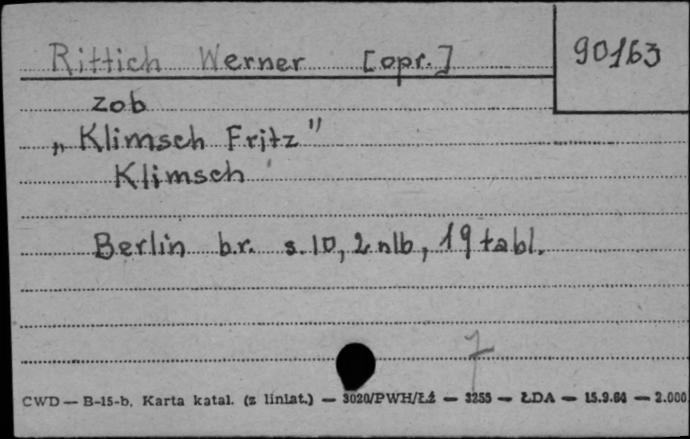 Rittich Werner [opr.] 90163
zob
„Klimsch Fritz"
Klimsch
Berlin b.r. s. 10, 2 nlb, 19 tabl.
7
CWD — B-15-b. Karta katal. (z liniat.) — 3020/PWH/Łź — 3255 — ŁDA — 15.9.64 — 2.000